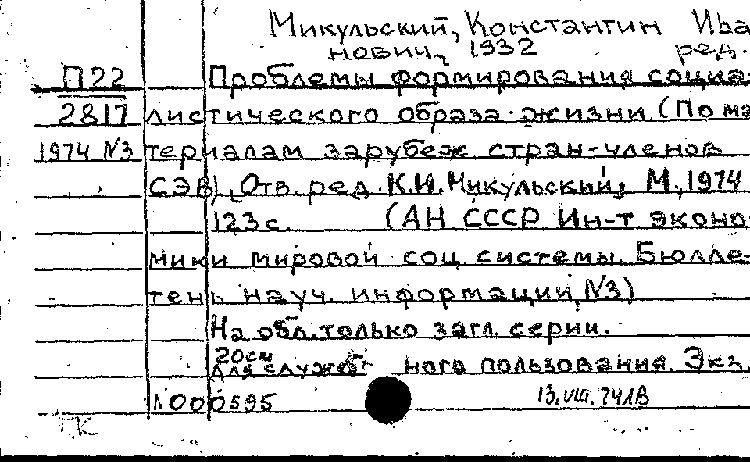 Микульский, Константин Ива
нович, 1932 ред.
П22 Проблемы формирования социа
2817 листического образа жизни (По ма
1974 №3 териалам зарубеж. стран-членов
СЭВ). Отв. ред. К.И. Микульский, М., 1974
123 с. (АН СССР Ин-т эконо
мики мировой соц. системы. Бюлле
тень науч. информации, №3)
На обл. только загл. серии.
20см
Для служеб ного пользования. Экз.
№000595 13.VIII.74
К